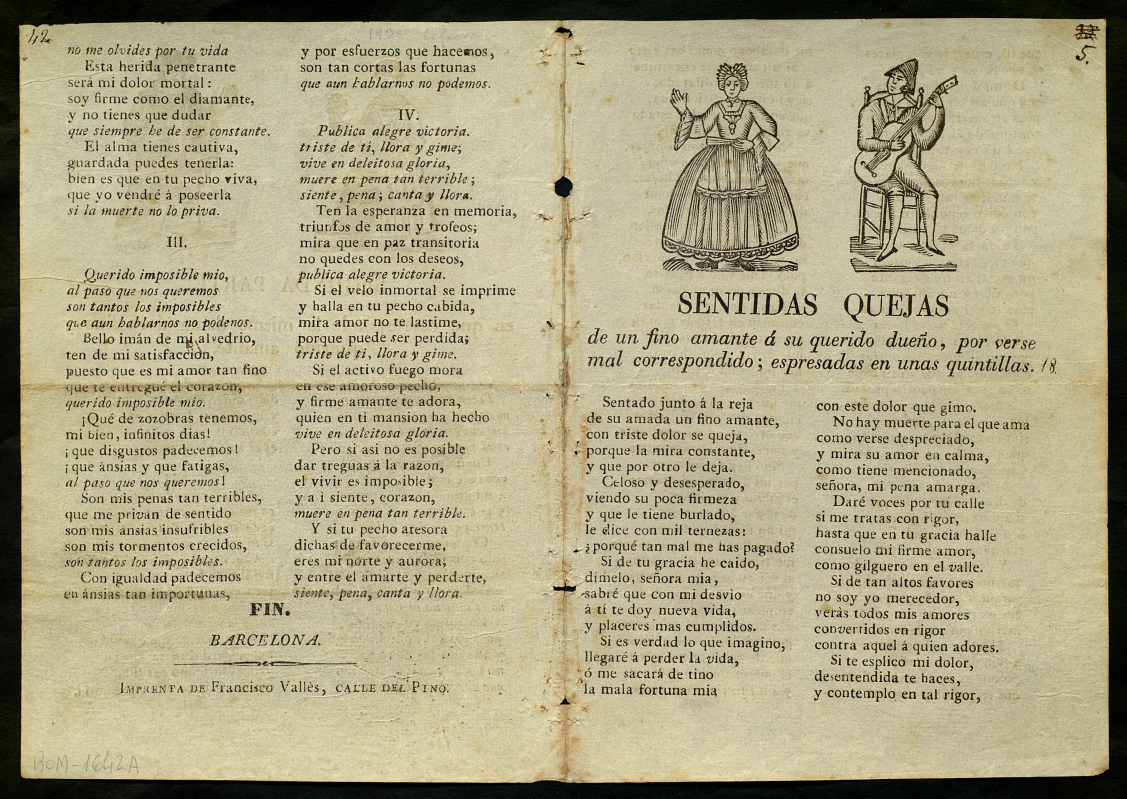 42
no me olvides por tu vida
Esta herida penetrante
será mi dolor mortal:
soy firme como el diamante,
y no tienes que dudar
que siempre he de ser constante.
El alma tienes cautiva,
guardada puedes tenerla:
bien es que en tu pecho viva,
que yo vendré á poseerla
si la muerte no lo priva.
III.
Querido imposible mio,
al paso que nos queremos
son tantos los imposibles
que aun hablarnos no podenos.
Bello imán de mi alvedrio,
ten de mi satisfaccion,
puesto que es mi amor tan fino
que te entregué el corazon,
querido imposible mio.
¡Qué de zozobras tenemos,
mi bien, infinitos dias!
¡que disgustos padecemos!
¡que ánsias y que fatigas,
al paso que nos queremos!
Son mis penas tan terribles,
que me privan de sentido
son mis ánsias insufribles
son mis tormentos crecidos,
son tantos los imposibles.
Con igualdad padecemos
en ánsias tan importunas,
y por esfuerzos que hacemos,
son tan cortas las fortunas
que aun hablarnos no podemos.
IV.
Publica alegre victoria.
triste de tí, llora y gime;
vive en deleitosa gloria,
muere en pena tan terrible;
siente, pena; canta y llora.
Ten la esperanza en memoria,
triunfos de amor y trofeos;
mira que en paz transitoria
no quedes con los deseos,
publica alegre victoria.
Si el velo inmortal se imprime
y halla en tu pecho cabida,
mira amor no te lastime,
porque puede ser perdida;
triste de ti, llora y gime.
Si el activo fuego mora
en ese amoroso pecho,
y firme amante te adora,
quien en ti mansion ha hecho
vive en deleitosa gloria.
Pero si asi no es posible
dar treguas á la razon,
el vivir es imposible;
y a i siente, corazon,
muere en pena tan terrible.
Y si tu pecho atesora
dichas de favorecerme,
eres mi norte y aurora;
y entre el amarte y perderte,
siente, pena, canta y llora.
FIN.
BARCELONA.
IMPRENTA DE Francisco Vallès, CALLE DEL PINO.
BOM-1642A
5.
SENTIDAS QUEJAS
de un fino amante á su querido dueño, por verse
mal correspondido; espresadas en unas quintillas. 18.
Sentado junto á la reja
de su amada un fino amante,
con triste dolor se queja,
porque la mira constante,
y que por otro le deja.
Celoso y desesperado,
viendo su poca firmeza
y que le tiene burlado,
le dice con mil ternezas:
¿porqué tan mal me has pagado?
Si de tu gracia he caido,
dímelo, señora mia,
sabré que con mi desvio
á tí te doy nueva vida,
y placeres mas cumplidos.
Si es verdad lo que imagino,
llegaré á perder la vida,
ó me sacará de tino
la mala fortuna mia
con este dolor que gimo.
No hay muerte para el que ama
como verse despreciado,
y mira su amor en calma,
como tiene mencionado,
señora, mi pena amarga.
Daré voces por tu calle
si me tratas con rigor,
hasta que en tu gracia halle
consuelo mi firme amor,
como gilguero en el valle.
Si de tan altos favores
no soy yo merecedor,
verás todos mis amores
convertidos en rigor
contra aquel á quien adores.
Si te esplico mi dolor,
desentendida te haces,
y contemplo en tal rigor,